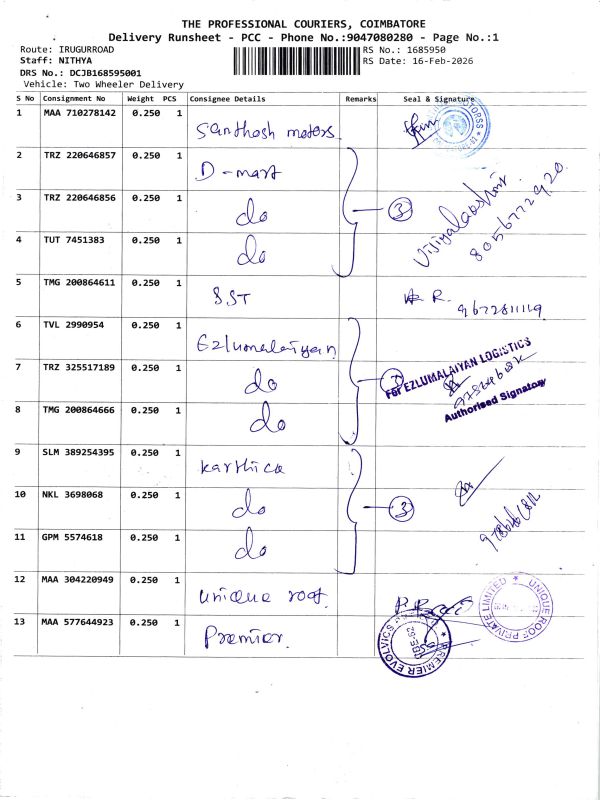 THE PROFESSIONAL COURIERS, COIMBATORE
Delivery Runsheet - PCC - Phone No.:9047080280 - Page No.:1
Route: IRUGURROAD
RS No.: 1685950
Staff: NITHYA
RS Date: 16-Feb-2026
DRS No.: DCJB168595001
Vehicle: Two Wheeler Delivery
S No Consignment No Weight PCS Consignee Details Remarks Seal & Signature
1 MAA 710278142 0.250 1 Santhosh motors.
2 TRZ 220646857 0.250 1 D-mart
3 TRZ 220646856 0.250 1 do 3
Vijiyalaxshmi.
8056772920
4 TUT 7451383 0.250 1 do
5 TMG 200864611 0.250 1 SST R.
9672811119
6 TVL 2990954 0.250 1 Ezlumalaiyan
For EZLUMALAIYAN LOGISTICS
7 TRZ 325517189 0.250 1 do
Authorised Signatory
8 TMG 200864666 0.250 1 do
9 SLM 389254395 0.250 1 Karthica
10 NKL 3698068 0.250 1 do 3
11 GPM 5574618 0.250 1 do
12 MAA 304220949 0.250 1 unique roof.
UNIQUE ROOF PRIVATE LIMITED
13 MAA 577644923 0.250 1 Premier.
PREMIER EVOLVICS